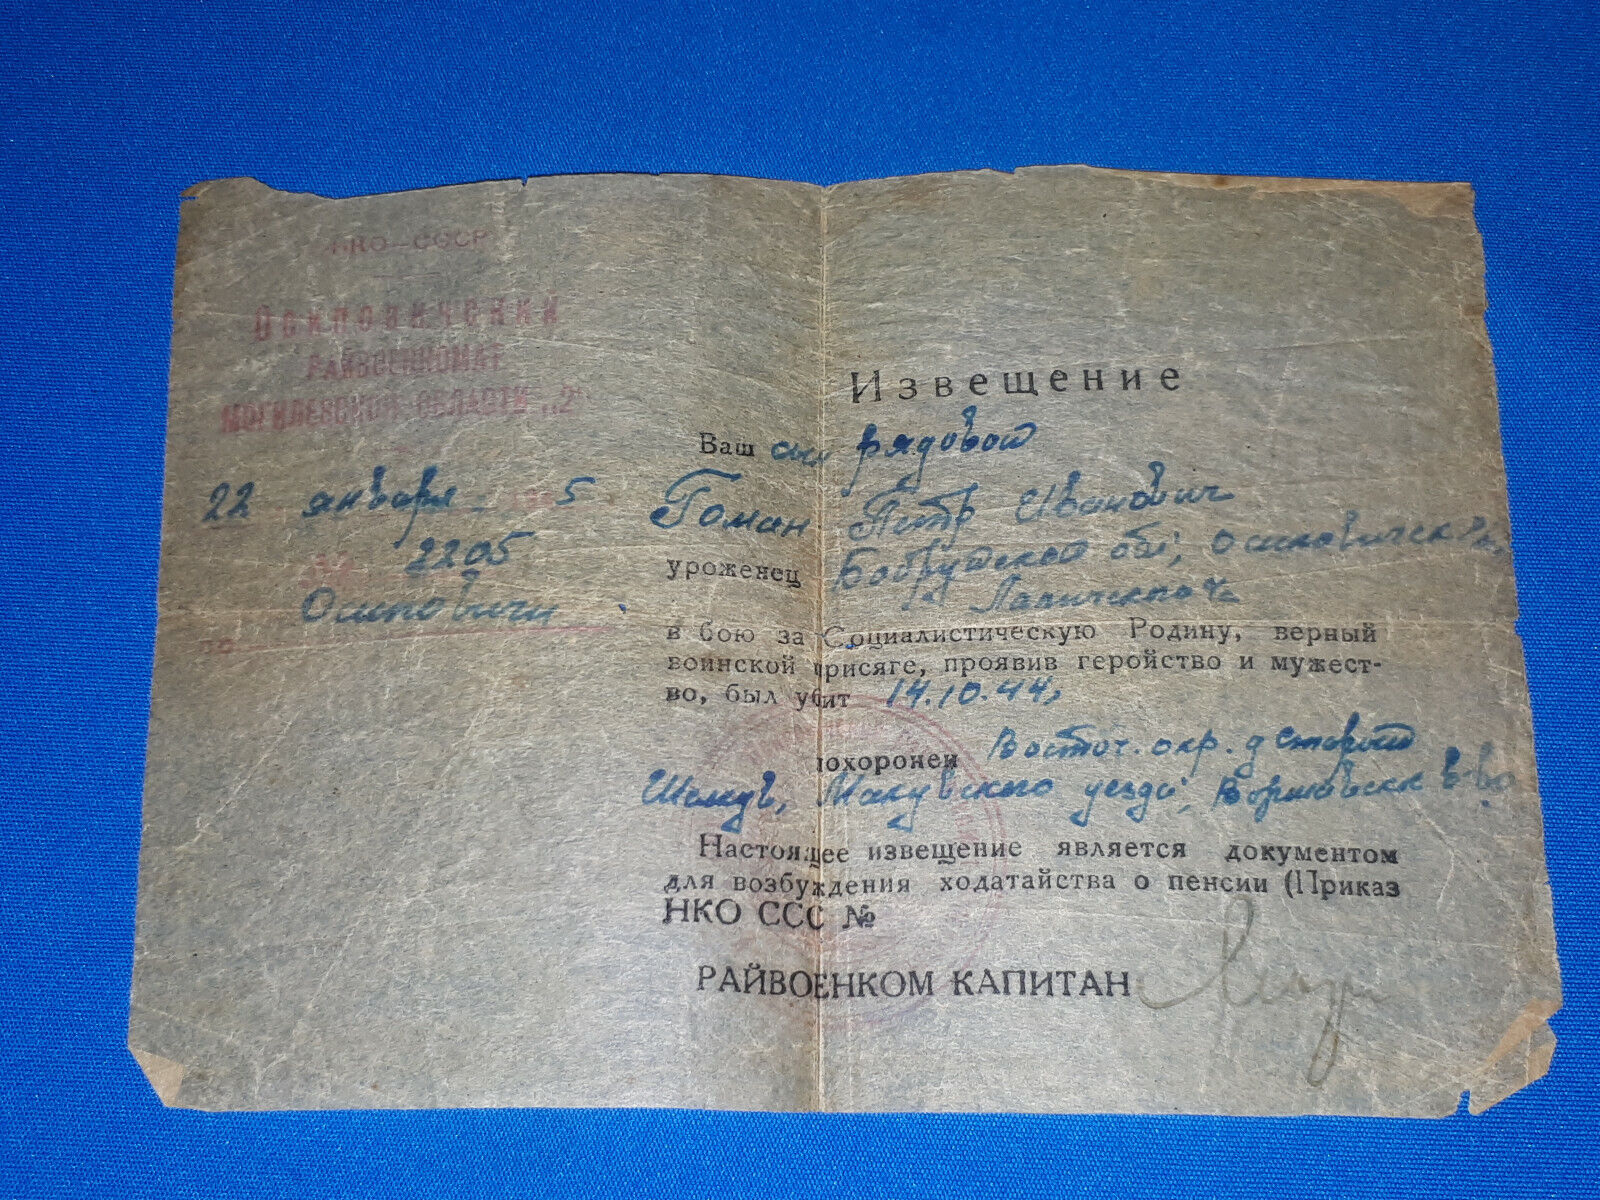 НКО-СССР
Осиповичский
РАЙВОЕННОМАТ
МОГИЛЕВСКОЙ ОБЛАСТИ
22 января 5
№ 2205
Осиповичи
Извещение
Ваш сын рядовой
Гоман Петр Иванович
уроженец Бобруйской обл, Осиповичск
в бою за Социалистическую Родину, верный
воинской присяге, проявив геройство и мужест-
во, был убит 14.10.44,
похоронен Восточ. окр. д Старый
Маковского уезда, Варшавск в-во
Настоящее извещение является документом
для возбуждения ходатайства о пенсии (Приказ
НКО ССС №
РАЙВОЕНКОМ КАПИТАН